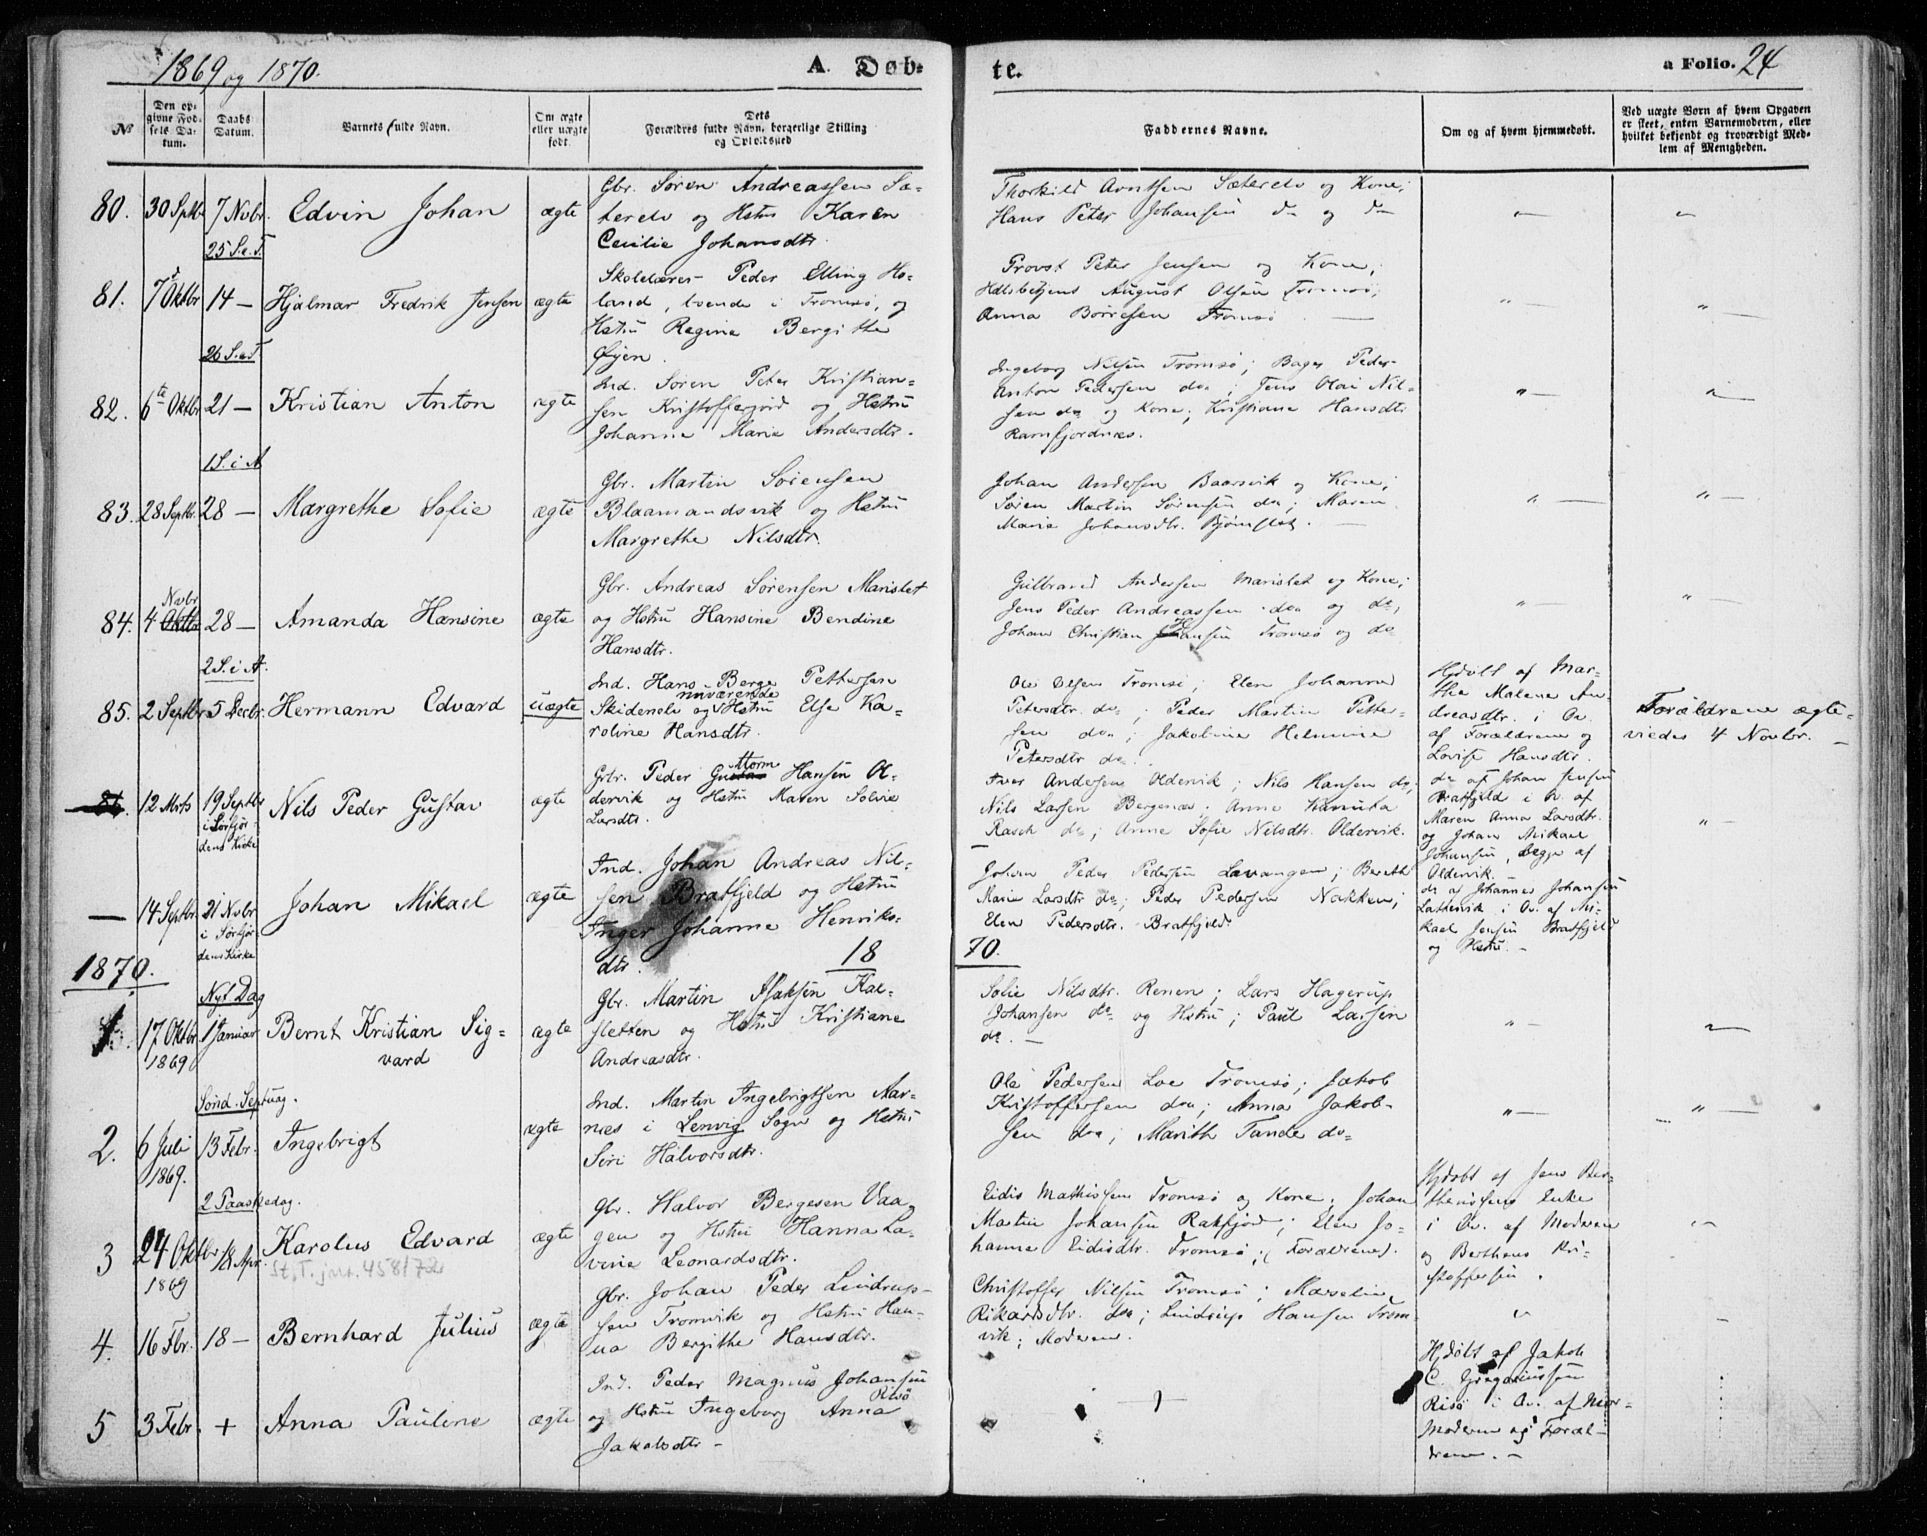 1869 og 1870.
A. Døb-
te.
a Folio. 24
№
Den op-
givne Fød-
sels Da-
tum.
Daabs
Datum.
Barnets fulde Navn.
Om ægte
eller uægte
født.
Dets
Forældres fulde Navn, borgerlige Stilling
og Opholdssted
Faddernes Navne.
Om og af hvem hjemmedøbt.
Ved uægte Børn af hvem Opgaven
er skeet, enten Barnemoderen, eller
hvilket bekjendt og troværdigt Med-
lem af Menigheden.
80. 30 Sptbr 7 Novbr. Edvin Johan ægte
Gbr. Søren Andreassen Sæ-
terelv og Hstru Karen
Cecilie Johansdtr.
Thorkild Arntsen Sæterelv og Kone;
Hans Peter Johansen do og do
25 S. e. T.
81. 7 Oktbr 14 — Hjalmar Fredrik Jensen ægte
Skolelærer Peder Elling Ho-
land, boende i Tromsø, og
Hstru Regine Bergithe
Øijen.
Provst Peter Jensen og Kone;
Hdlsbetjent August Olsen Tromsø;
Anna Børresen Tromsø —
26 S. e. T.
82. 6te Oktbr 21 — Kristian Anton ægte
Ind. Søren Peter Kristian-
sen Kristofferjord og Hstru
Johanne Marie Andersdtr.
Ingeborg Nilsen Tromsø; Bager Peder
Anton Pedersen do; Jens Olai Nil-
sen do og Kone; Kristiane Hansdtr
Ramfjordnæs.
1 S. i A
83. 28 Septbr. 28 — Margrethe Sofie ægte
Gbr. Martin Sørensen
Blaamandsvik og Hstru
Margrethe Nilsdtr.
Johan Andersen Baarsvik og Kone;
Søren Martin Sørensen do; Maren
Marie Johansdtr. Bjørnslet. —
84. 4 Oktbr Novbr 28 — Amanda Hansine ægte
Gbr. Andreas Sørensen Marislet
og Hstru Hansine Bendine
Hansdtr.
Gulbrand Andersen Marislet og Kone;
Jens Peder Andreassen do og do;
Johan Christian Hansen Tromsø og do
2 S. i A.
85. 2 Septbr 5 Decbr. Hermann Edvard uægte
Ind. Hans Berge Pettersen
Skidenelv og nuværende Hstru Else Ka-
roline Hansdtr.
Ole Olsen Tromsø; Elen Johanna
Petersdtr. do; Peder Martin Petter-
sen do; Jakobine Helmine
Petersdtr do.
Hdøbt af Mar-
tha Malene An-
dreasdtr. i Ov.
af Forældrene og
Lovise Hansdtr.
Forældrene ægte-
viedes 4 Novbr. —
86. 12 Mrts 19 Septbr
i Sørfjor-
dens Kirke
Nils Peder Gustav ægte
Grbr. Peder Gustav Morm Hansen Ol-
dervik og Hstru Maren Solvie
Larsdtr.
Iver Andersen Oldervik; Nils Hansen do;
Nils Larsen Bergenæs; Anne Knuta
Rasch do; Anne Sofie Nilsdtr. Oldervik.
do af Johan Jensen
Bratfjeld i Ov. af
Maren Anna Larsdtr.
og Johan Mikael
Johansen, begge af
Oldervik.
— 14 Septbr. 21 Novbr
i Sørfjor-
dens Kirke
Johan Mikael ægte
Ind. Johan Andreas Nil-
sen Bratfjeld og Hstru
Inger Johanne Henriks-
dtr.
Johan Peder Pedersen Lavangen; Bereth
Marie Larsdtr do; Peder Pedersen Nakken;
Elen Pedersdtr. Bratfjeld.
do af Johannes Johansen
Lattervik i Ov. af Mi-
kael Jensen Bratfjeld
og Hstru. —
1870.
18
70.
Nyt. Dag
1. 17 Oktbr.
1869
1 Januar Bernt Kristian Sig-
vard
ægte
Gbr. Martin Isaksen Kal-
sletten og Hstru Kristiane
Andreasdtr.
Sofie Nilsdtr. Renen; Lars Hagerup
Johansen do og Hstru; Paul Larsen
do. —
Sønd. Septuag.
2. 6 Juli
1869.
13 Febr. Ingebrigt ægte
Ind. Martin Ingebrigtsen Aar-
næs i Lenvig Sogn og Hstru
Siri Halvorsdtr.
Ole Pedersen Loe Tromsø; Jakob
Kristoffersen do; Anna Jakob-
sen do; Marith Tande do
2 Paaskedag.
3 24 Oktbr
1869
18 Apr. Karolus Edvard ægte
St. T. jnr. 458/72
Gbr. Halvor Bergesen Vaa-
gen og Hstru Hanna La-
vine Leonardsdtr.
Eidis Mathissen Tromsø og Kone; Johan
Martin Johansen Rakfjord; Elen Jo-
hanna Eidisdtr. Tromsø; (Forældrene).
Hjdøbt af Jens Ber-
theussens Enke
i Ov. af Moderen
og Bertheus Kri-
stoffersen.
4. 16 Fbr. 18 — Bernhard Julius ægte
Gbr. Johan Peder Lindrup-
sen Tromvik og Hstru Han-
na Bergithe Hansdtr.
Christoffer Nilsen Tromsø; Marselie
Rikardsdtr. do; Lindrup Hansen Trom-
vik; Moderen.
5 3 Febr. + Anna Pauline ægte
Ind. Peder Magnus Johansen
Risø
og Hstru Ingeborg Anna
Jakobsdtr —
Hjdøbt af Jakob
C. Gregoriussen
Risø i Ov. af Mor-
moderen og Foræl-
drene. —